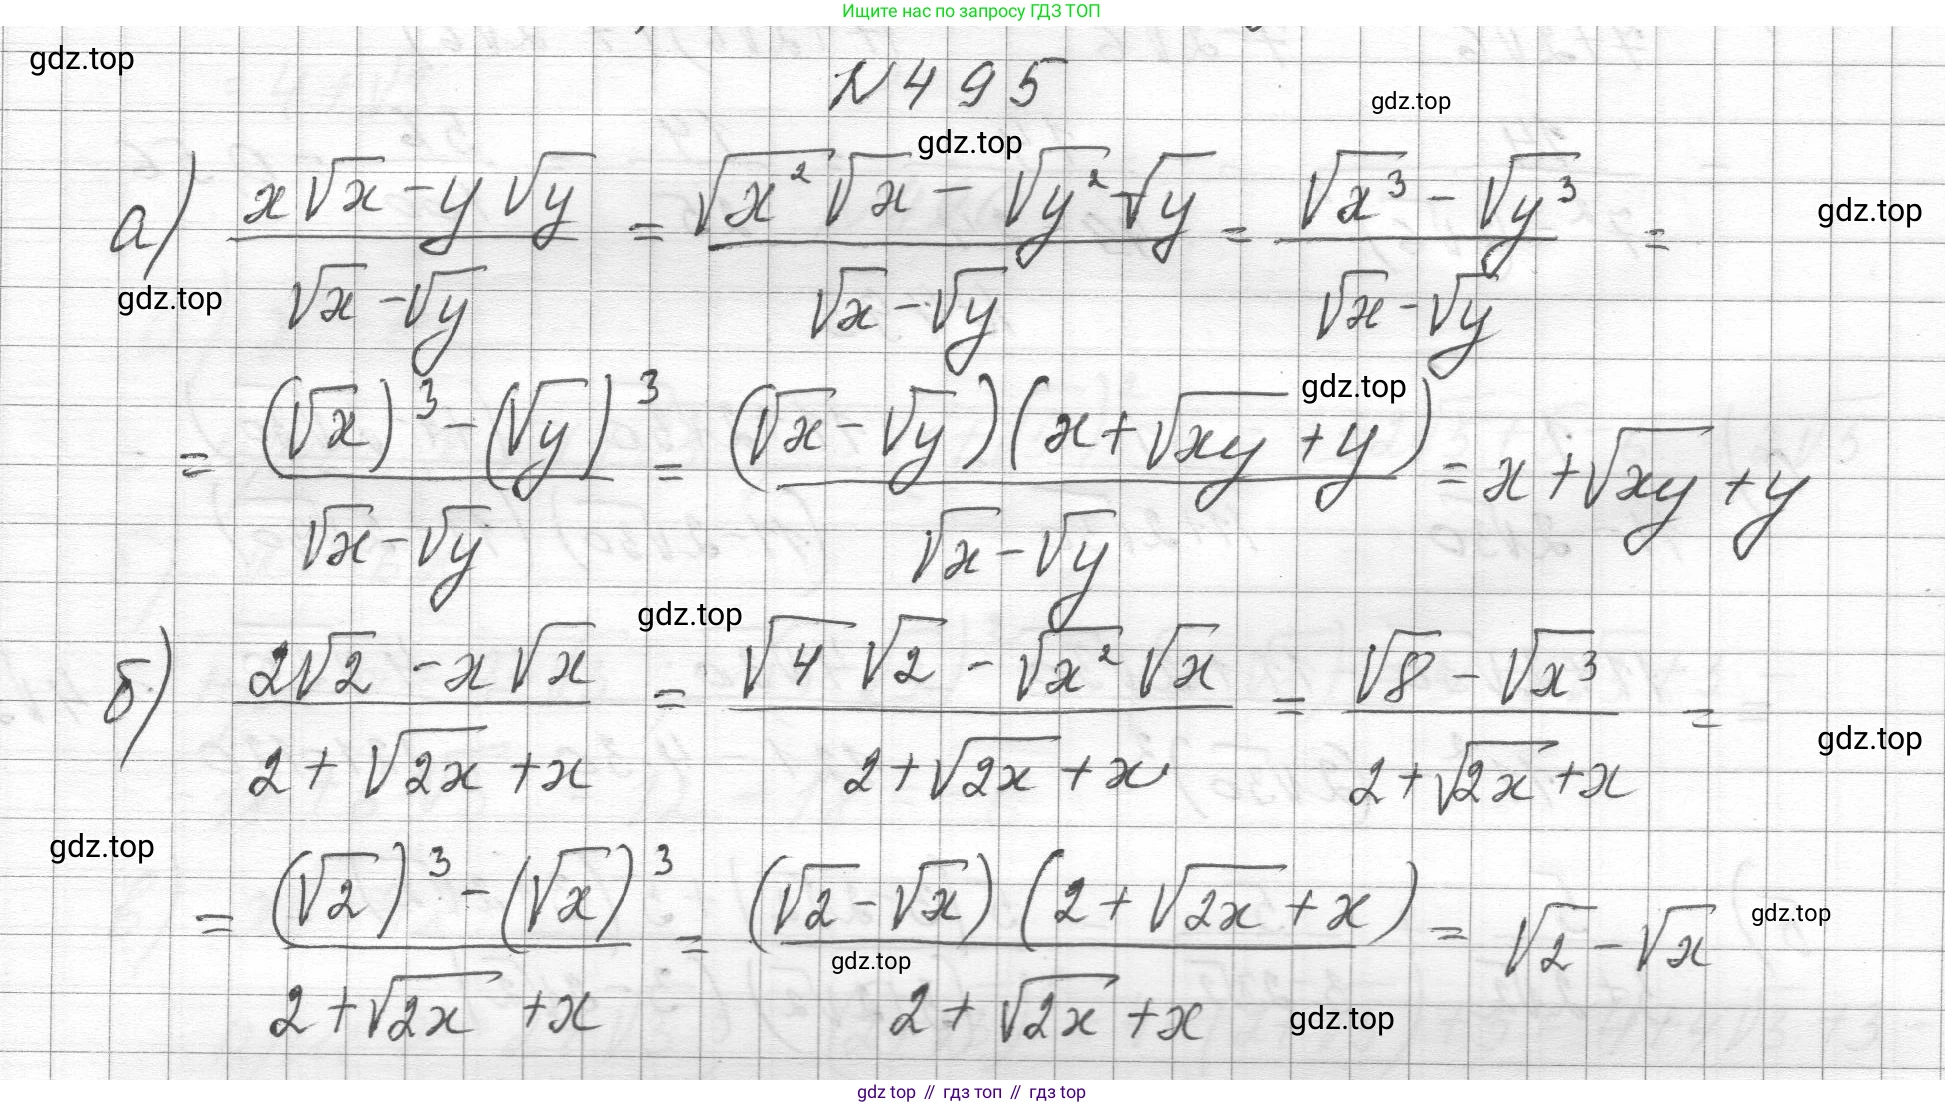 Ищите нас по запросу ГДЗ ТОП
gdz.top
N 495
gdz.top
gdz.top
а) (x√x - y√y)/(√x - √y) = (√x² √x - √y² √y)/(√x - √y) = (√x³ - √y³)/(√x - √y) =
gdz.top
gdz.top
gdz.top
= ((√x)³ - (√y)³)/(√x - √y) = ((√x - √y)(x + √xy + y))/(√x - √y) = x + √xy + y
gdz.top
б) (2√2 - x√x)/(2 + √2x + x) = (√4 √2 - √x² √x)/(2 + √2x + x) = (√8 - √x³)/(2 + √2x + x) =
gdz.top
gdz.top
= ((√2)³ - (√x)³)/(2 + √2x + x) = ((√2 - √x)(2 + √2x + x))/(2 + √2x + x) = √2 - √x
gdz.top
gdz.top
gdz.top
gdz top // гдз топ // gdz top